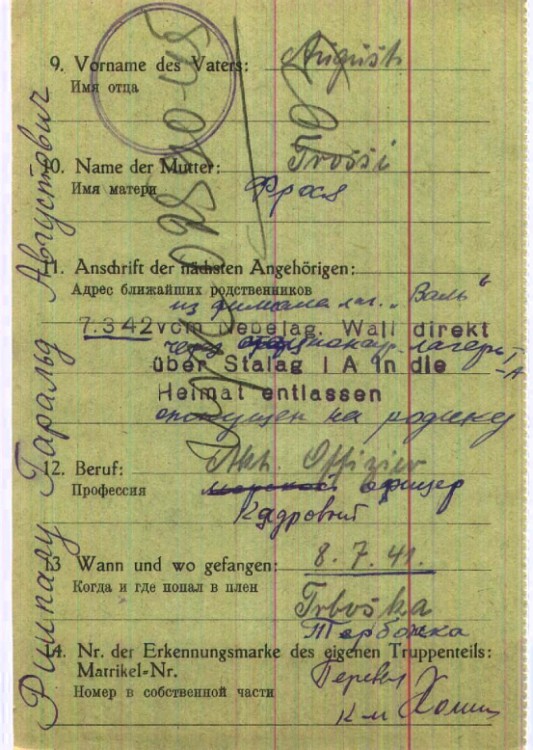 9. Vorname des Vaters: August
Имя отца
10. Name der Mutter: Trossi
Имя матери Фрося
11. Anschrift der nächsten Angehörigen:
Адрес ближайших родственников
из филиала лаг. „Валь“
7.3.42 vom Nebelag. Wall direkt
через лагерь I-A
über Stalag I A in die
Heimat entlassen
отпущен на родину
12. Beruf: Akt. Offizier
Профессия морской офицер
Кадровый
13 Wann und wo gefangen: 8. 7. 41.
Когда и где попал в плен
Trboška
Тербошка
14. Nr. der Erkennungsmarke des eigenen Truppenteils:
Matrikel-Nr.
Номер в собственной части
Перевел
к-н
Гаральд Августович